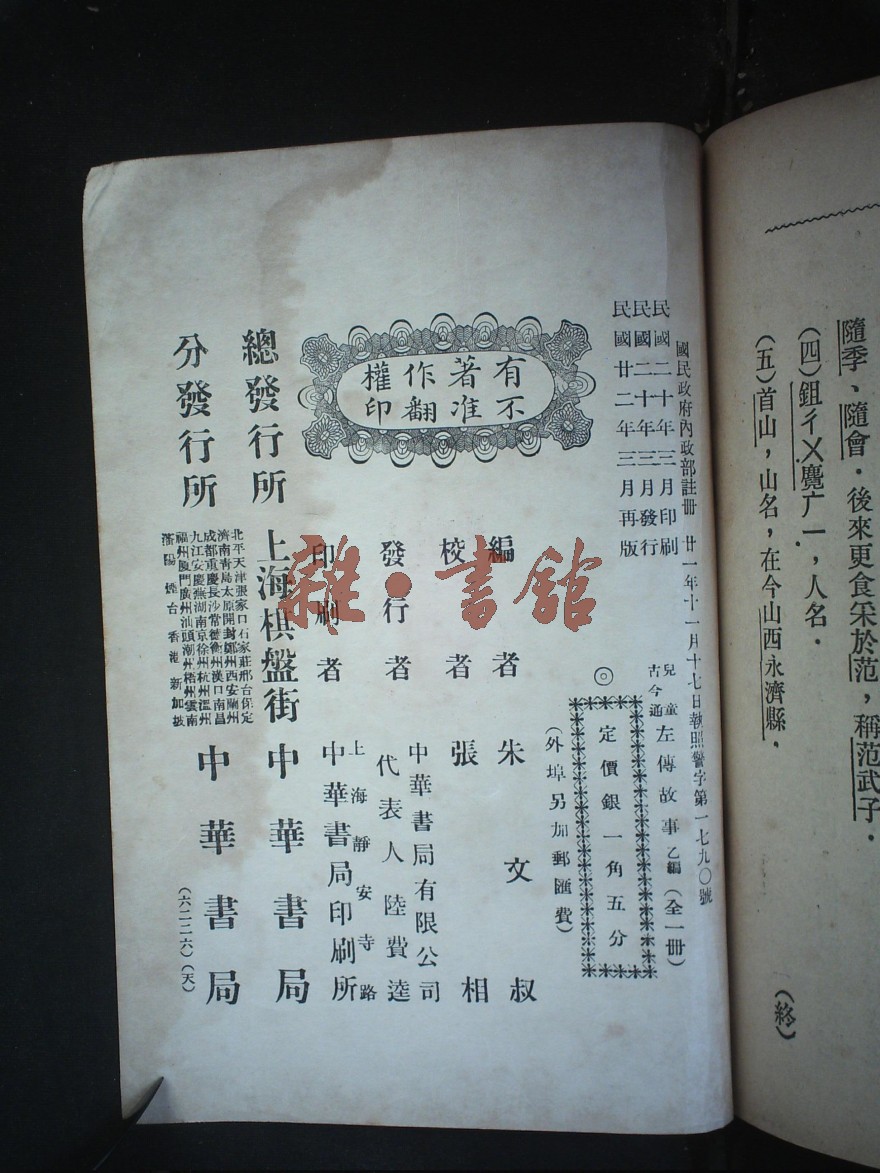 隨季、隨會．後來更食采於范，稱范武子．
(四)鉏ㄔㄨ麑ㄏㄧ，人名．
(五)首山，山名，在今山西永濟縣．
(終)
國民政府內政部註冊 廿一年十一月十七日執照警字第一七九〇號
民國二十年三月印刷
民國二十年三月發行
民國廿二年三月再版
兒童古今通 左傳故事 乙編 (全一冊)
◎定價銀一角五分
(外埠另加郵匯費)
有著作權
不准翻印
編者 朱文叔
校者 張相
發行者 中華書局有限公司
代表人 陸費逵
印刷者 上海靜安寺路
中華書局印刷所
總發行所 上海棋盤街 中華書局
分發行所
北平天津張家口石家莊邢台保定
濟南青島太原開封鄭州西安蘭州
成都重慶長沙常德衡州漢口南昌
九江安慶蕪湖南京徐州杭州溫州
福州廈門廣州汕頭潮州梧州雲南
瀋陽煙台香港新加坡
中華書局
(六二二六)(天)
雜·書館